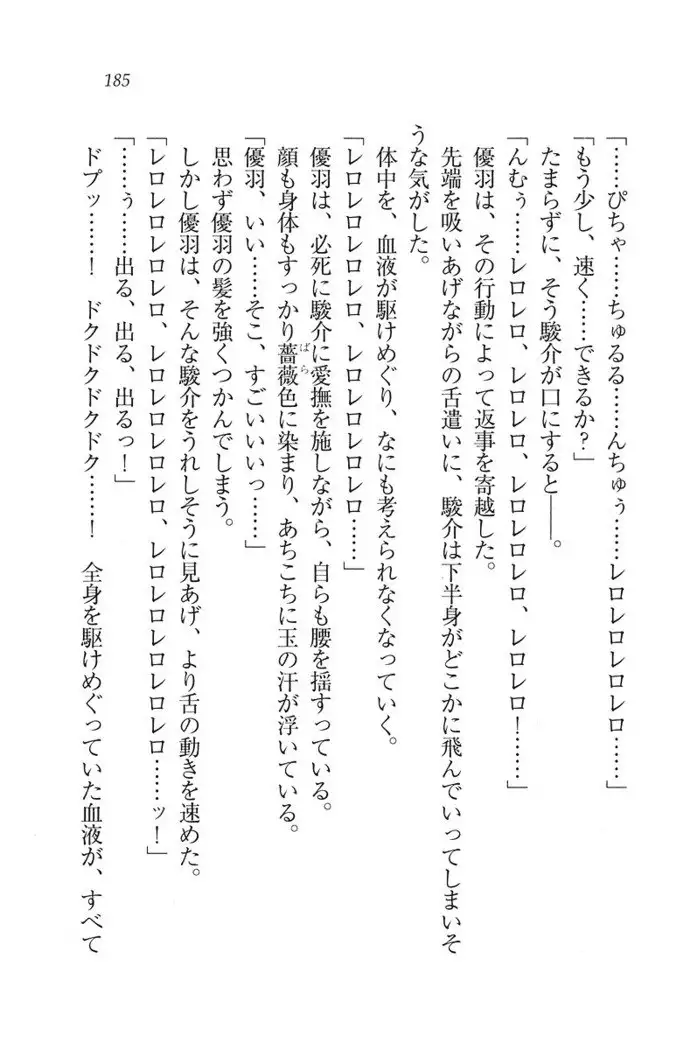 185
「……ぴちゃ……ちゅるる……んちゅぅ……レロレロレロレロ……」
「もう少し、速く……できるか？」
たまらずに、そう駿介が口にすると――。
「んむぅ……レロレロ、レロレロ、レロレロレロ、レロレロ！……」
優羽は、その行動によって返事を寄越した。
先端を吸いあげながらの舌遣いに、駿介は下半身がどこかに飛んでいってしまいそ
うな気がした。
体中を、血液が駆けめぐり、なにも考えられなくなっていく。
「レロレロレロレロ、レロレロレロレロ……」
優羽は、必死に駿介に愛撫を施しながら、自らも腰を揺すっている。
顔も身体もすっかり薔薇色に染まり、あちこちに玉の汗が浮いている。
「優羽、いい……そこ、すごいいいっ……」
思わず優羽の髪を強くつかんでしまう。
しかし優羽は、そんな駿介をうれしそうに見あげ、より舌の動きを速めた。
「レロレロレロレロ、レロレロレロレロ、レロレロレロレロレロ……ッ！」
「……ぅ……出る、出る、出るっ！」
ドプッ……！　ドクドクドクドク……！　全身を駆けめぐっていた血液が、すべて